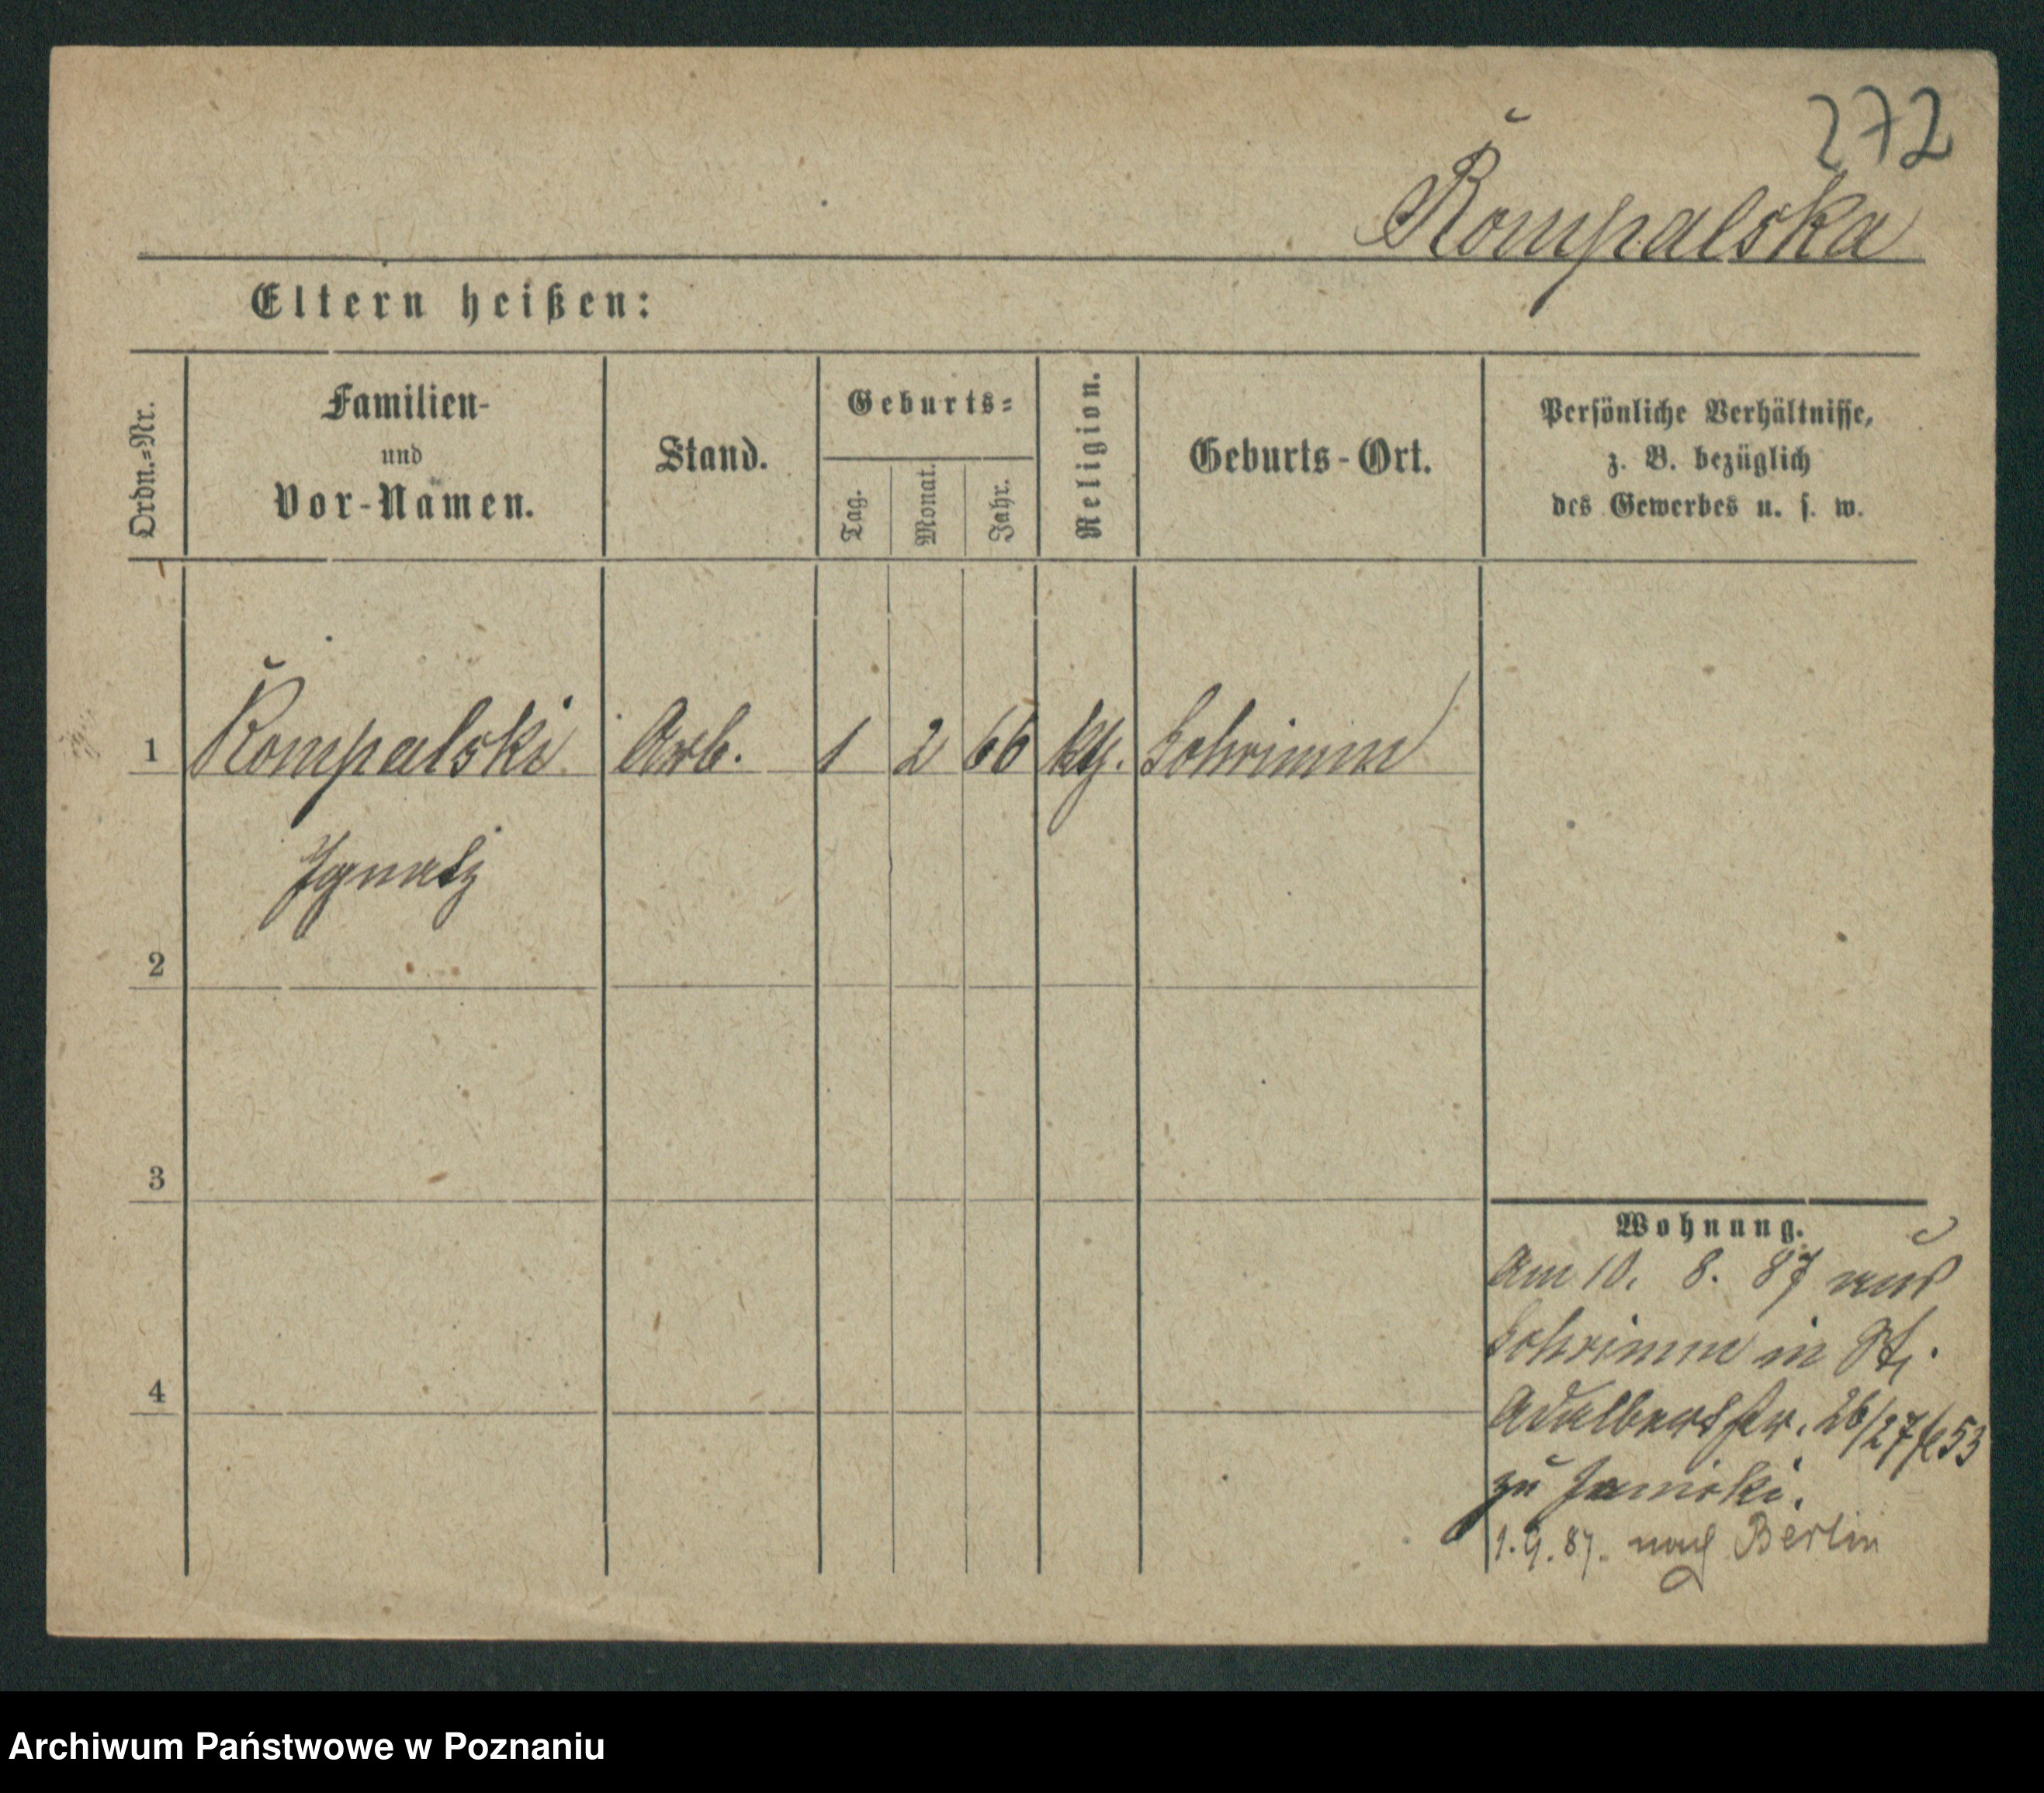 272
Rompalska
Eltern heißen:
Ordn.=Nr.
Familien-
und
Vor-Namen.
Stand.
Geburts=
Tag.
Monat.
Jahr.
Religion.
Geburts-Ort.
Persönliche Verhältnisse,
z. B. bezüglich
des Gewerbes u. s. w.
1 Rompalski Arb. 1 2 66 kth. Schrimm
Ignatz
2
3
4
Wohnung.
Am 10. 8. 87 aus
Schrimm in
Adalbertstr. 26/27 53
zu Janicki.
1. 9. 87. nach Berlin
Archiwum Państwowe w Poznaniu